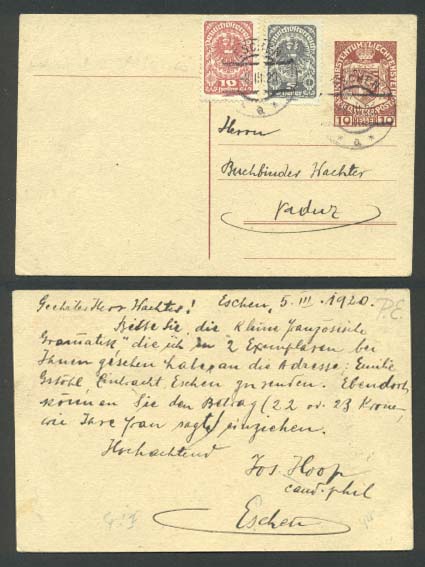 FÜRSTENTUM LIECHTENSTEIN
10 HELLER 10
10
5
ESCHEN
III 20
a
Herrn
Buchbinder Wachter
Vaduz
Geehrter Herr Wachter! Eschen, 5. III. 1920.
Bitte Sie, die "Kleine französische
Gramatik" die ich in 2 Exemplaren bei
Ihnen gesehen habe, an die Adresse: Emilie
Gstöhl, Eintracht, Eschen zu senden. Ebendort
können Sie den Betrag (22 od. 23 Kronen,
wie Ihre Frau sagte) einziehen.
Hochachtend
Jos. Hoop
cand. phil
Eschen
P.E.